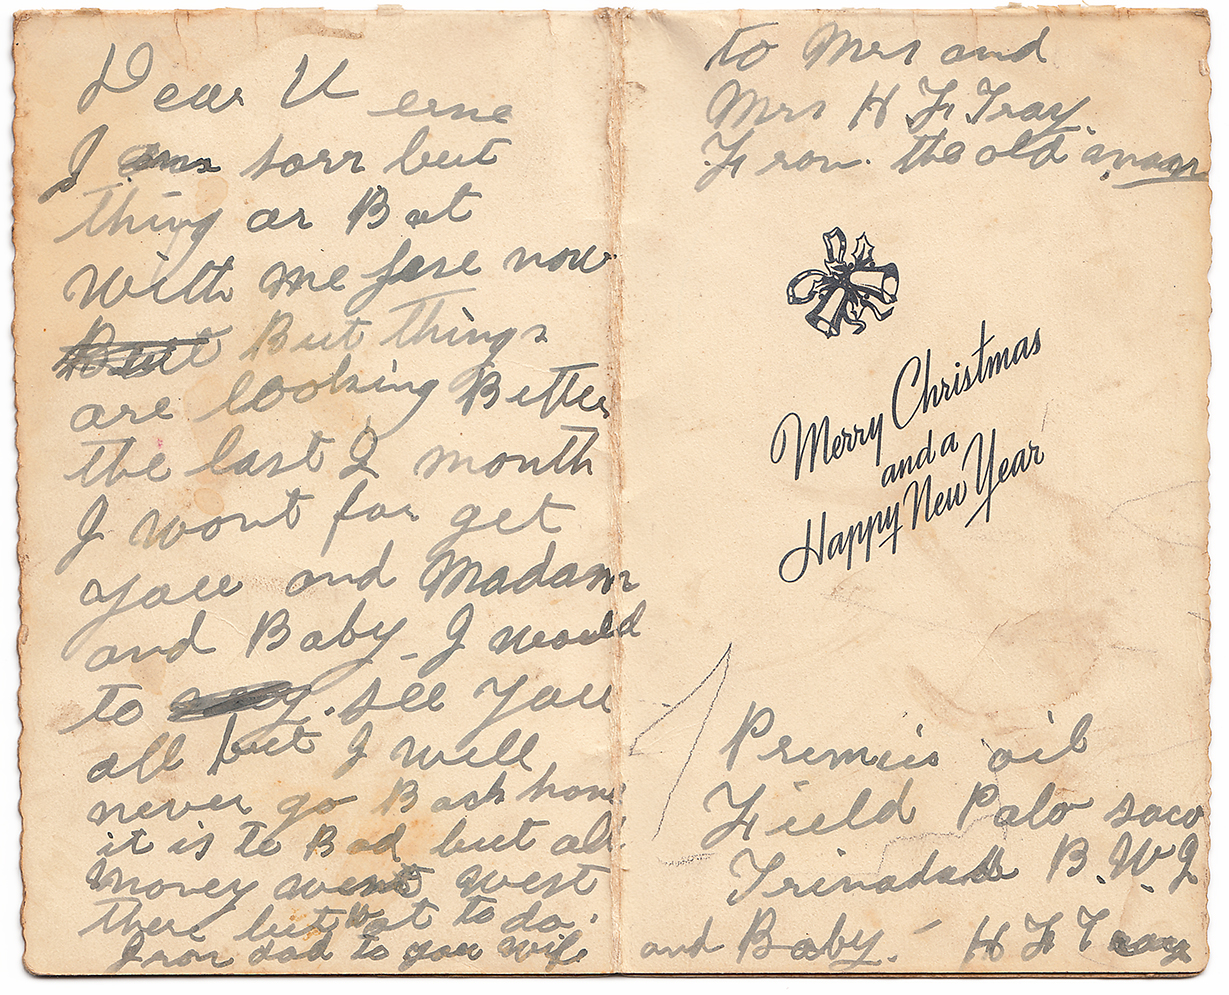 Dear Verne
I am sorr but
thing ar Bat
With me just now
But But things
are looking Better
the last 2 month
I wont for get
you and Madam
and Baby - I would
to see you
all but I will
never go Back hom
it is to Bad but all
money went west
there but wat to do.
From dad to you wife
and Baby.
to Mrs and
Mrs H F Tray.
From. the old
Merry Christmas
and a
Happy New Year
oil
Field Palo saco
B.W.I
H F Tray